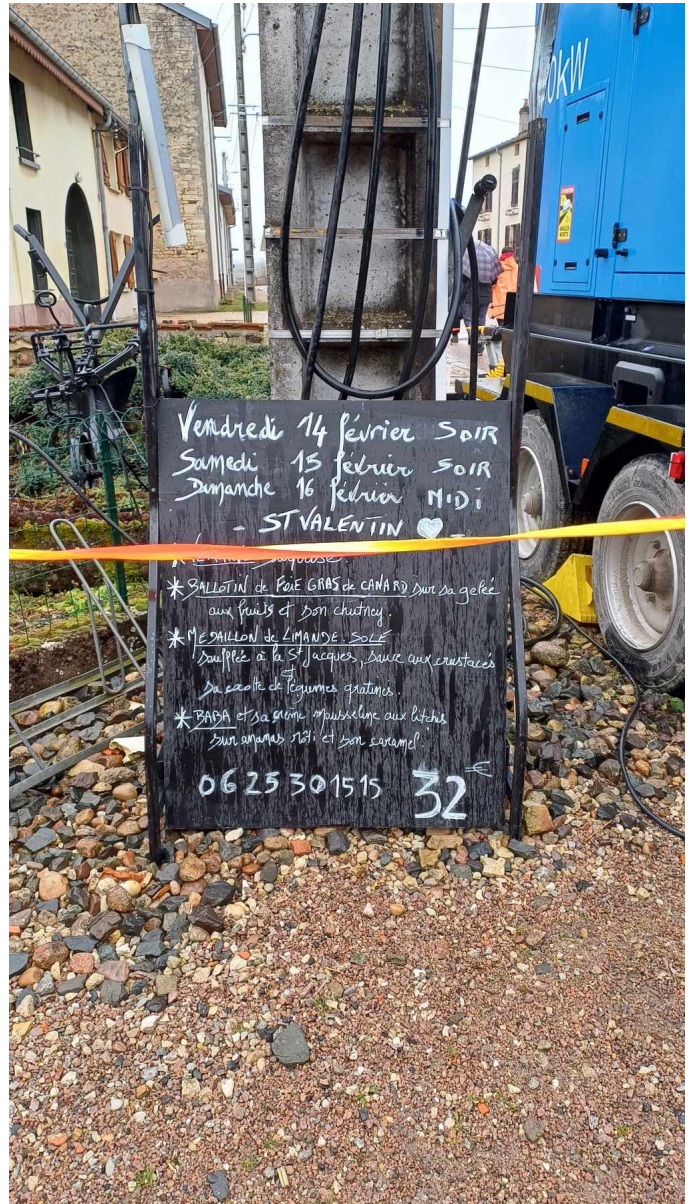 0kW
Vendredi 14 février SOIR
Samedi 15 février SOIR
Dimanche 16 février MIDI
- ST VALENTIN -
* BALLOTIN de FOIE GRAS de CANARD sur sa gelée
aux fruits et son chutney.
* MEDAILLON de LIMANDE. SOLE
soufflée à la St Jacques, sauce aux crustacés
&
sa cocotte de légumes gratinés.
* BABA et sa crème mousseline aux litchis
sur ananas rôti et son caramel.
06 25 30 15 15 32 €